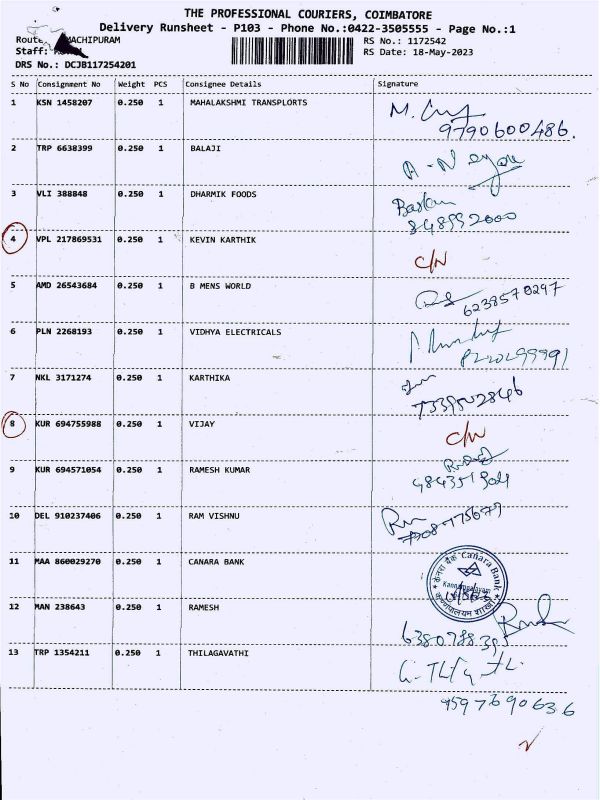 THE PROFESSIONAL COURIERS, COIMBATORE
Delivery Runsheet - P103 - Phone No.:0422-3505555 - Page No.:1
MACHIPURAM
RS No.: 1172542
Staff:
RS Date: 18-May-2023
DRS No.: DCJB117254201
S No Consignment No Weight PCS Consignee Details Signature
1 KSN 1458207 0.250 1 MAHALAKSHMI TRANSPLORTS
9790600486.
2 TRP 6638399 0.250 1 BALAJI
3 VLI 388848 0.250 1 DHARMIK FOODS
4 VPL 217869531 0.250 1 KEVIN KARTHIK C/N
5 AMD 26543684 0.250 1 B MENS WORLD
6238570297
6 PLN 2268193 0.250 1 VIDHYA ELECTRICALS
7 NKL 3171274 0.250 1 KARTHIKA
8 KUR 694755988 0.250 1 VIJAY C/N
9 KUR 694571054 0.250 1 RAMESH KUMAR
10 DEL 910237406 0.250 1 RAM VISHNU
11 MAA 860029270 0.250 1 CANARA BANK
केनरा बैंक Canara Bank
12 MAN 238643 0.250 1 RAMESH
13 TRP 1354211 0.250 1 THILAGAVATHI
9597690636